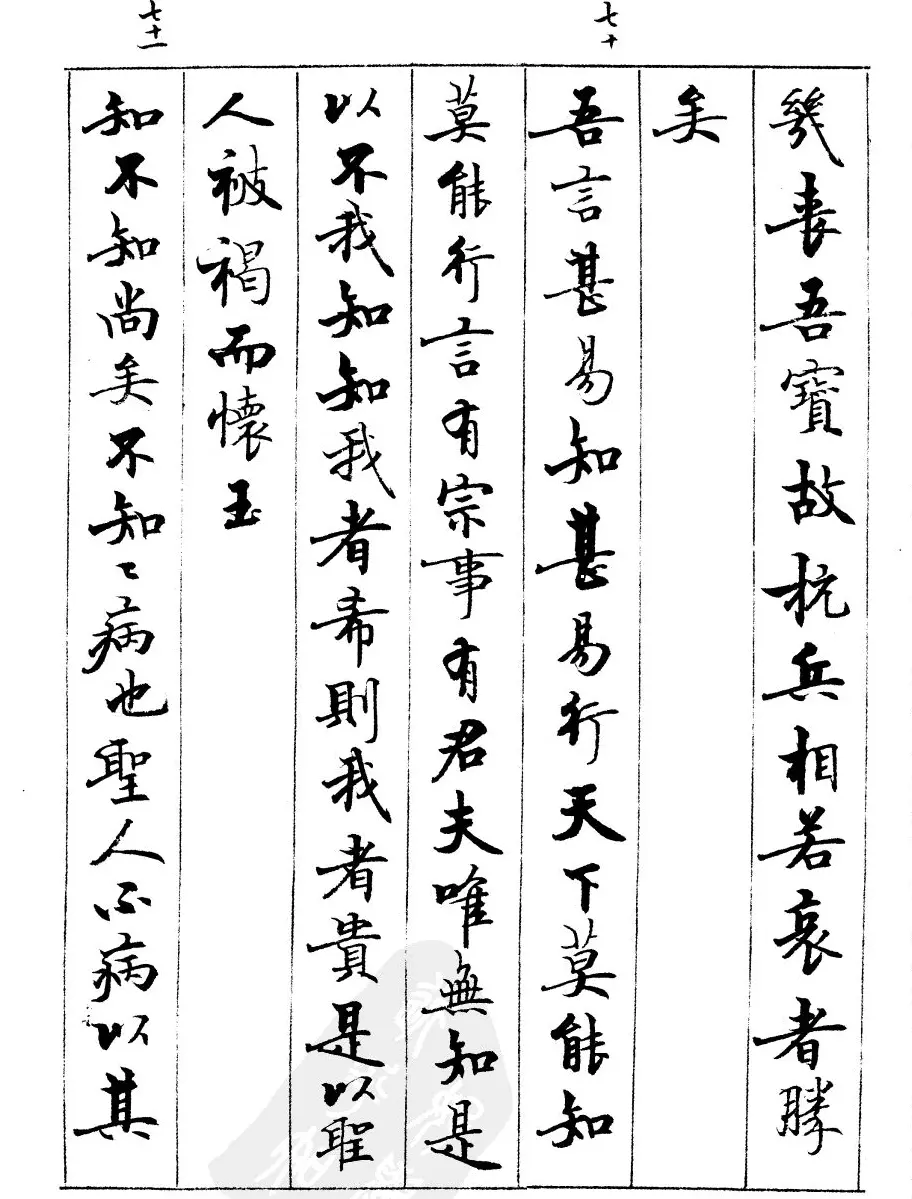 幾喪吾寳故抗兵相若哀者勝
矣
七十
吾言甚易知甚易行天下莫能知
莫能行言有宗事有君夫唯無知是
以不我知知我者希則我者貴是以聖
人被褐而懷玉
七十一
知不知尚矣不知〻病也聖人不病以其